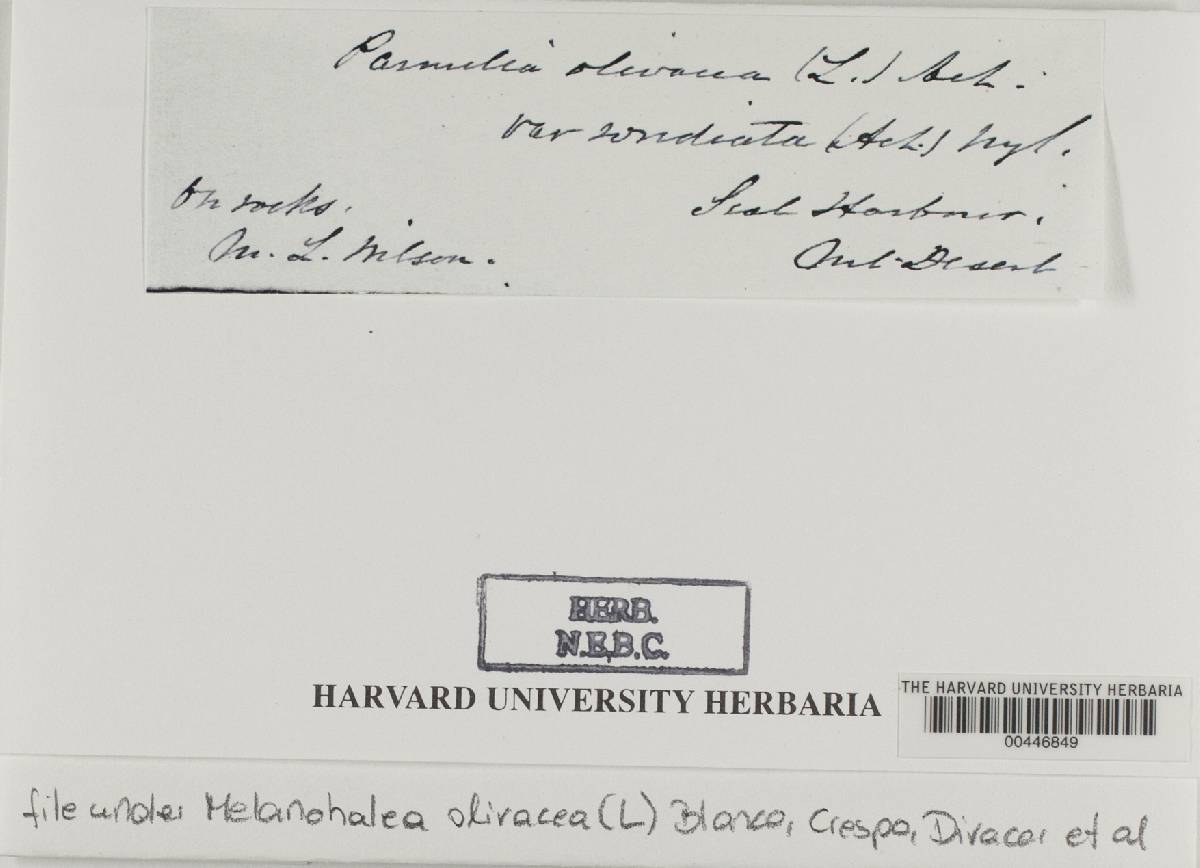 Parmelia olivacea (L.) Ach.
var sorediata (Ach.) Nyl.
On rocks.
Seal Harbour.
M. L. Wilson.
Mt. Desert
HERB.
N.E.B.C.
HARVARD UNIVERSITY HERBARIA
THE HARVARD UNIVERSITY HERBARIA
00446849
file under Melanohalea olivacea (L) Blanco, Crespo, Divacar et al